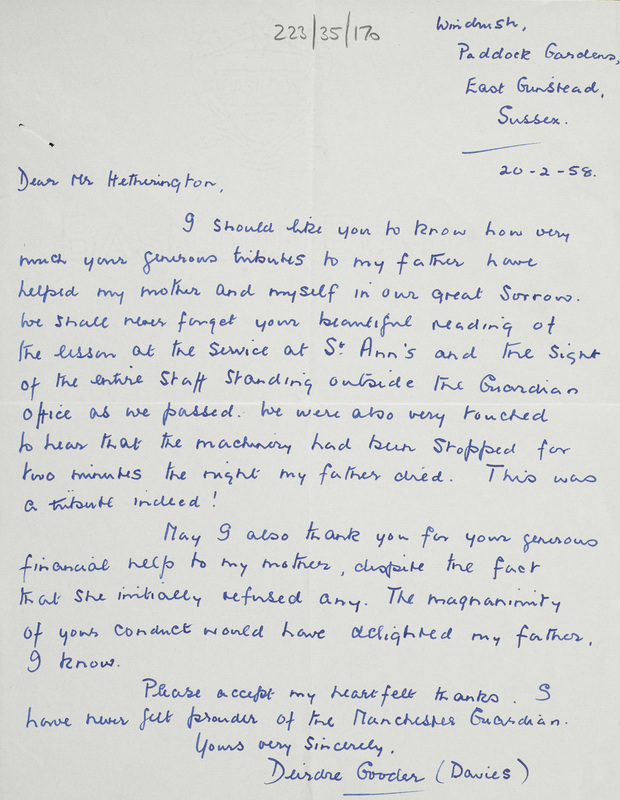 223/35/170
Windrush,
Paddock Gardens,
East Grinstead,
Sussex.
20-2-58.
Dear Mr Hetherington,
I should like you to know how very
much your generous tributes to my father have
helped my mother and myself in our great sorrow.
We shall never forget your beautiful reading of
the lesson at the service at St Ann's and the sight
of the entire staff standing outside the Guardian
office as we passed. We were also very touched
to hear that the machinery had been stopped for
two minutes the night my father died. This was
a tribute indeed!
May I also thank you for your generous
financial help to my mother, despite the fact
that she initially refused any. The magnanimity
of your conduct would have delighted my father,
I know.
Please accept my heartfelt thanks. I
have never felt prouder of the Manchester Guardian.
Yours very sincerely,
Deirdre Gooder (Davies)